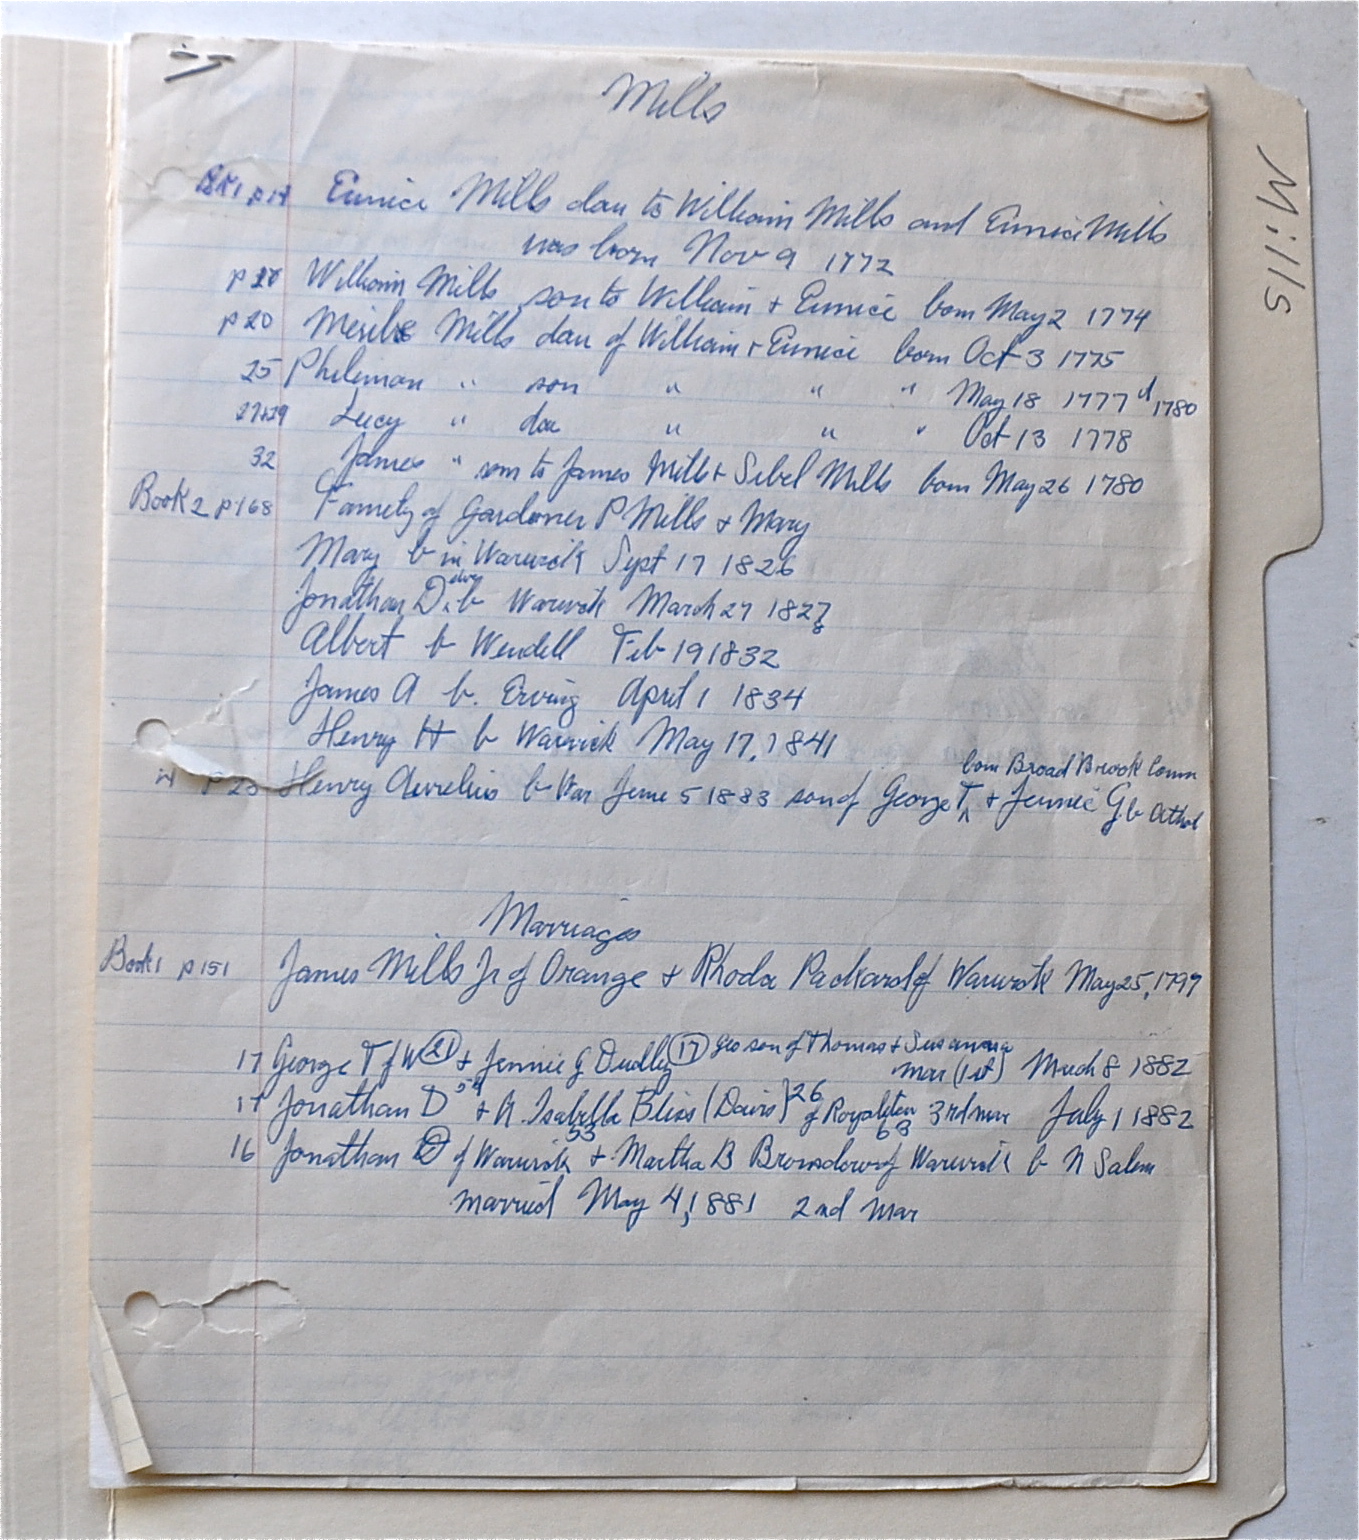 Mills
Mills
BK1 p 14 Eunice Mills dau to William Mills and Eunice Mills
was born Nov 9 1772
p 20 William Mills son to William + Eunice born May 2 1774
p 20 Mills dau of William + Eunice born Oct 3 1775
25 Philiman " son " " " May 18 1777 d 1780
27+29 Lucy " dau " " " Oct 13 1778
32 James " son to James Mills + Sibel Mills born May 26 1780
Book 2 p 168 Family of Gardner P Mills + Mary
Mary b in Warwick Sept 17 1826
Jonathan D b Warwick March 27 1827 8
Albert b Wendell Feb 19 1832
James A b. Erving April 1 1834
Henry H b Warwick May 17, 1841
born Broad Brook Conn
p 25 Henry Aurelius b War June 5 1883 son of George T ^ + Jennie G b Athol
Marriages
Book 1 p 151 James Mills Jr of Orange + Rhoda Packard of Warwick May 25, 1797
17 George T of W 21 + Jennie G Dudley 17 Geo son of Thomas + Susanna
mar (1st) March 8 1882
17 Jonathan D 54 + Isabella Bliss (Davis) 26 of Royalston 3rd mar July 1 1882
53 63
16 Jonathan D of Warwick + Martha B of Warwick b N Salem
married May 4, 1881 2nd mar